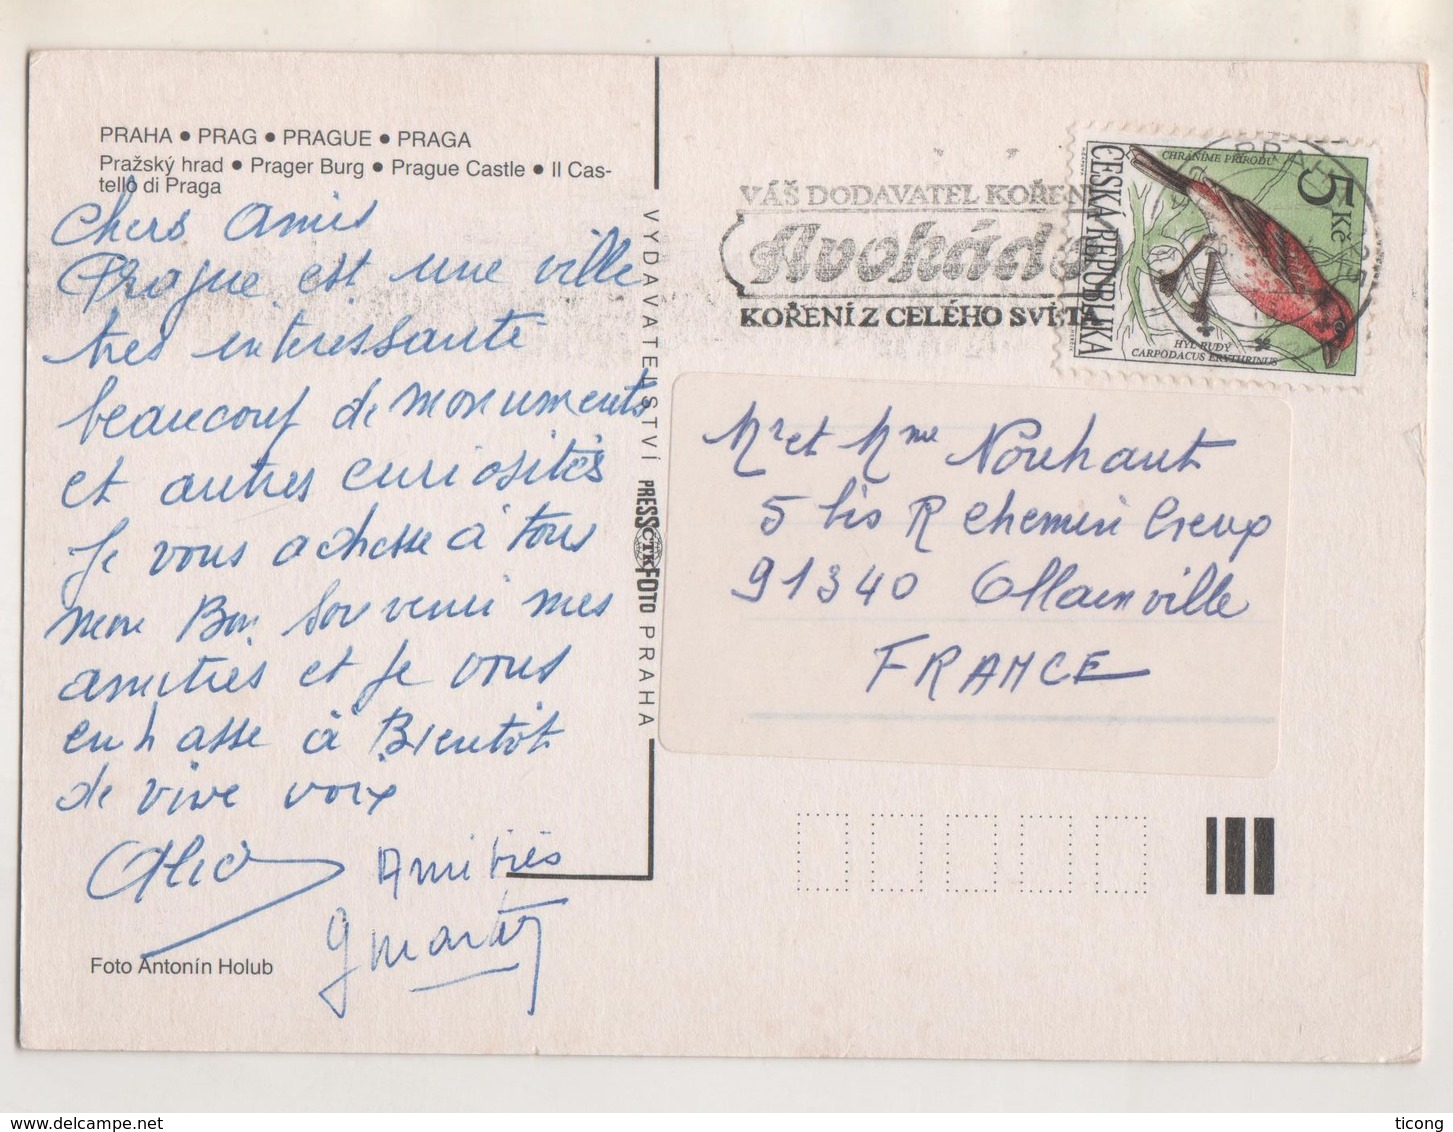 PRAHA • PRAG • PRAGUE • PRAGA
Pražský hrad • Prager Burg • Prague Castle • Il Cas-
tello di Praga
Chers Amis
Prague est une ville
tres interessante
beaucoup de monuments
et autres curiosités
Je vous adresse à tous
mon Bon Souvenir mes
amitiés et Je vous
embrasse à Bientôt
de vive voix
Amitiés
Foto Antonín Holub
VYDAVATELSTVÍ PRESSFOTO PRAHA
ČTK
VÁŠ DODAVATEL KOŘENÍ
Avokádo
KOŘENÍ Z CELÉHO SVĚTA
CHRAŇME PŘÍRODU
5 Kč
ČESKÁ REPUBLIKA
HÝL RUDÝ
CARPODACUS ERYTHRINUS
Mr et Mme Nouhaut
5 bis R Chemin Creux
91340 Ollainville
FRANCE
delcampe.net
ticong